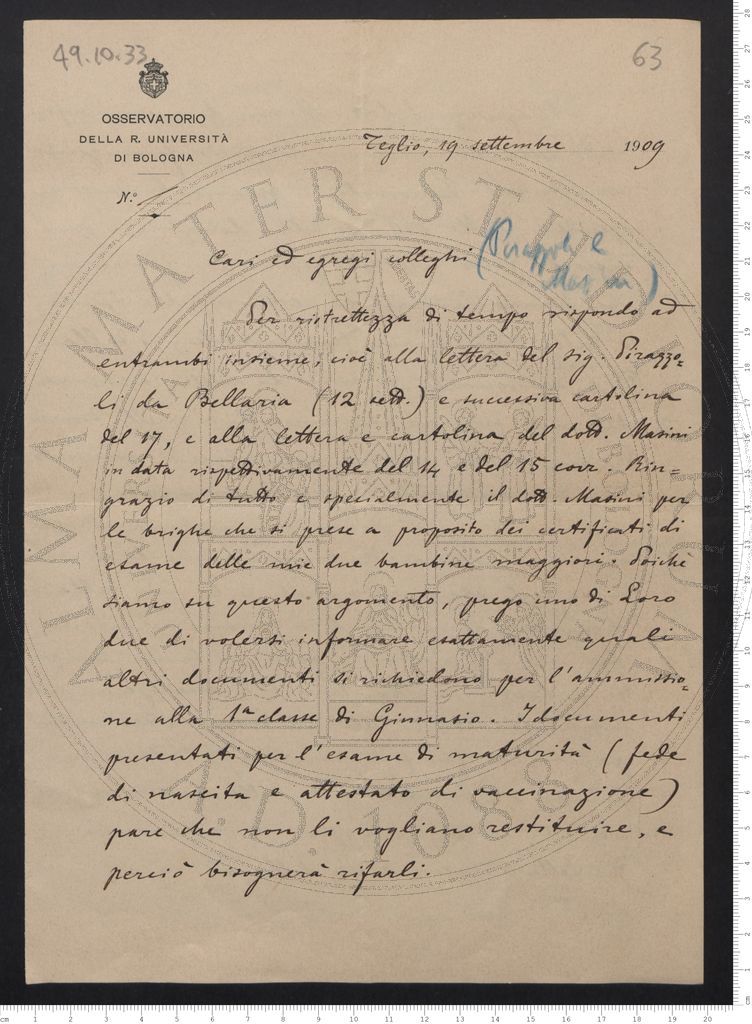 49.10.33
63
OSSERVATORIO
DELLA R. UNIVERSITÀ
DI BOLOGNA
N.°
Teglio, 19 settembre 1909
Cari ed egregi colleghi (Pirazzoli e
Masini)
Per ristrettezza di tempo rispondo ad
entrambi insieme, cioè alla lettera del sig. Pirazzo-
li da Bellaria (12 sett.) e successiva cartolina
del 17, e alla lettera e cartolina del dott. Masini
in data rispettivamente del 14 e del 15 corr. Rin=
grazio di tutto e specialmente il dott. Masini per
le brighe che si prese a proposito dei certificati di
esame delle mie due bambine maggiori. Poichè
siamo su questo argomento, prego uno di Loro
due di volersi informare esattamente quali
altri documenti si richiedono per l'ammissio-
ne alla 1ª classe di Ginnasio. I documenti
presentati per l'esame di maturità (fede
di nascita e attestato di vaccinazione)
pare che non li vogliano restituire, e
perciò bisognerà rifarli.
ALMA MATER STUDIORUM
A.D. 1088